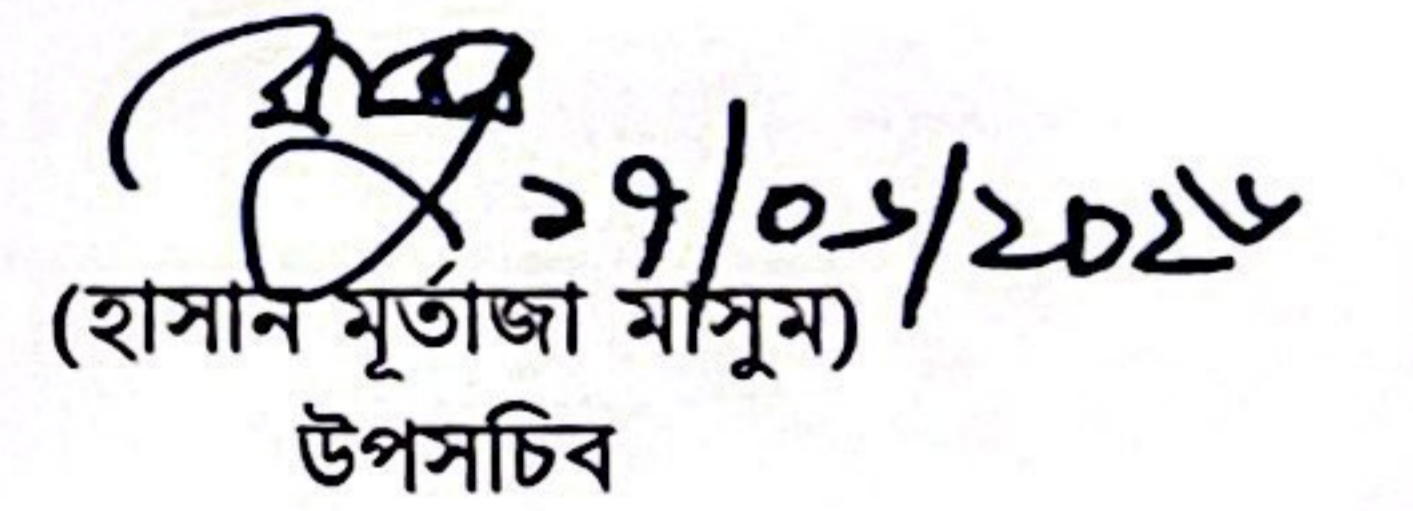 ২৭/০১/২০২৬
(হাসান মূর্তাজা মাসুম)
উপসচিব